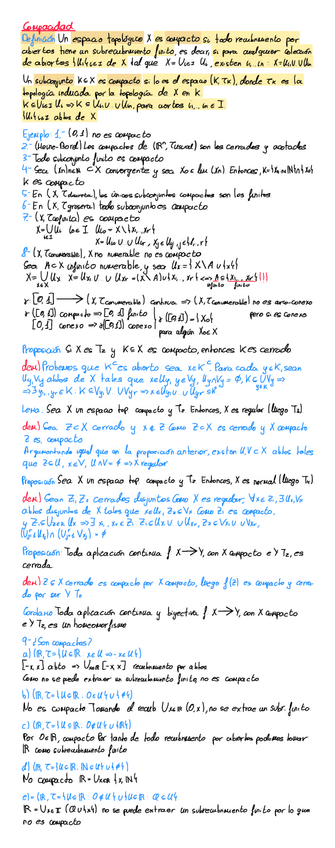 Compacidad
Definición Un espacio topológico X es compacto si todo recubrimiento por
abiertos tiene un subrecubrimiento finito, es decir, si para cualquier colección
de abiertos {Ui}i∈I de X tal que X=∪i∈I Ui, existen i1...in : X=Ui1∪...∪Uin
Un subconjunto K⊆X es compacto si lo es el espacio (K,TK), donde TK es la
topología inducida por la topología de X en K
K⊆∪i∈I Ui ⇒ K⊆Ui1∪...∪Uin, para ciertos i1...in∈I
{Ui}i∈I abtos de X
Ejemplo: 1.- (0,1) no es compacto
2- (Heine-Borel) Los compactos de (ℝⁿ, Tusual) son los cerrados y acotados
3- Todo subconjunto finito es compacto
4- Sea (xn)n∈ℕ ⊂ X convergente y sea x0∈Lim (xn) Entonces, K={xn, n∈ℕ}∪{x0}
K es compacto
5- En (X, Tdiscreta), los únicos subconjuntos compactos son los finitos
6- En (X, Tgrosera) todo subconjunto es compacto
7- (X, Tcofinita) es compacto
8- (X, Tconumerable), X no numerable no es compacto
Sea A⊂X infinito numerable, y sea Ux={X\A∪{x}}
γ: [0,1] → (X, Tconumerable) continua ⇒ (X, Tconumerable) no es arco-conexo
γ([0,1]) compacto ⇒ γ[0,1] finito
pero si es conexo
[0,1] conexo ⇒ γ([0,1]) conexo
γ([0,1])={x0}
para algún x0∈X
Proposición Si X es T2 y K⊆X es compacto, entonces K es cerrado
dem) Probemos que Kᶜ es abierto sea x∈Kᶜ. Para cada y∈K, sean
Uy, Vy abtos de X tales que x∈Uy, y∈Vy, Uy∩Vy=∅, K⊆∪Vy ⇒
Lema. Sea X un espacio top compacto y T2 Entonces, X es regular (luego T3)
dem) Sea Z⊂X cerrado y x∉Z Como Z⊂X es cerrado y X compacto
Z es compacto
Argumentando igual que en la proposición anterior, existen U,V⊂X abtos tales
que Z⊆U, x∈V, U∩V=∅ ⇒ X regular
Proposición Sea X un espacio top compacto y T2 Entonces, X es normal (luego T4)
dem) Sean Z1, Z2 cerrados disjuntos Como X es regular, ∀x∈Z1 ∃Ux, Vx
abtos disjuntos de X tales que x∈Ux, Z2⊆Vx Como Z1 es compacto,
Proposición: Toda aplicación continua f: X→Y, con X compacto e Y T2, es
cerrada.
dem) Z⊆X cerrado es compacto por X compacto, luego f(Z) es compacto y cerra-
do por ser Y T2
Corolario Toda aplicación continua y biyectiva f: X→Y, con X compacto
e Y T2, es un homeomorfismo
9- ¿Son compactos?
a) (ℝ, T={U⊆ℝ: x∈U ⇒ -x∈U})
[-x,x] abto ⇒ ∪x∈ℝ [-x,x] recubrimiento por abtos
Como no se puede extraer un subrecubrimiento finito, no es compacto
b) (ℝ, T={U⊆ℝ: 0∈U}∪{∅})
No es compacto Tomando el recub ∪x∈ℝ {0,x}, no se extrae un subr. finito
c) (ℝ, T={U⊆ℝ: 0∉U}∪{ℝ})
Por 0∈ℝ, compacto Por tanto de todo recubrimiento por abiertos podemos tomar
ℝ como subrecubrimiento finito
d) (ℝ, T={U⊆ℝ: ℕ⊂U}∪{∅})
No compacto ℝ=∪x∈ℝ {x,ℕ}
ℝ=∪x∈I (ℚ∪{x}) no se puede extraer un subrecubrimiento finito por lo que
no es compacto